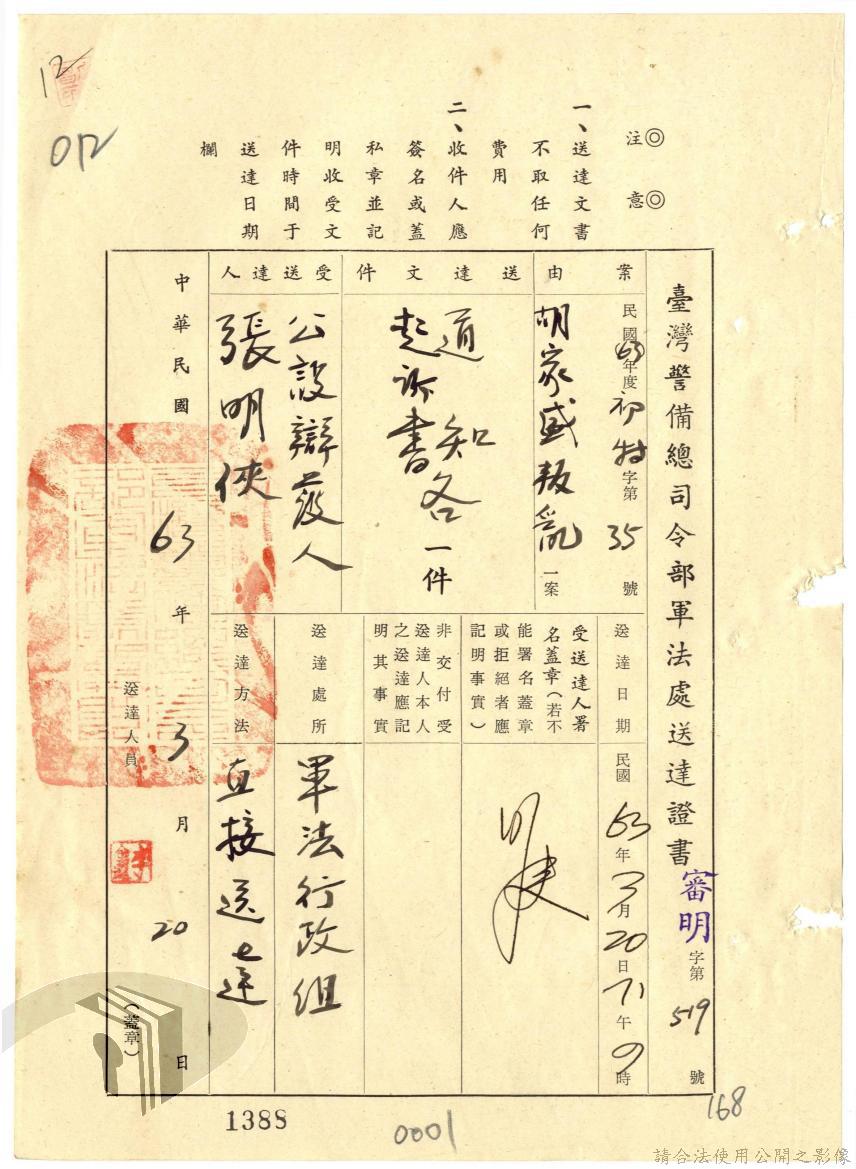 12
012
◎注意◎
一、送達文書
不取任何
費用
二、收件人應
簽名或蓋
私章並記
明收受文
件時間于
送達日期
欄
臺灣警備總司令部軍法處送達證書
審明字第519號
案由
民國63年度初特字第35號
胡家盛叛亂一案
送達文件
通知
起訴書各一件
受送達人
公設辯護人
張明俠
送達日期
民國63年3月20日下午 時
受送達人署
名蓋章(若不
能署名蓋章
或拒絕者應
記明事實)
非交付受
送達人本人
之送達應記
明其事實
送達處所
軍法行政組
送達方法
直接送達
中華民國63年3月20日
送達人員
(蓋章)
1388
0001
168
請合法使用公開之影像